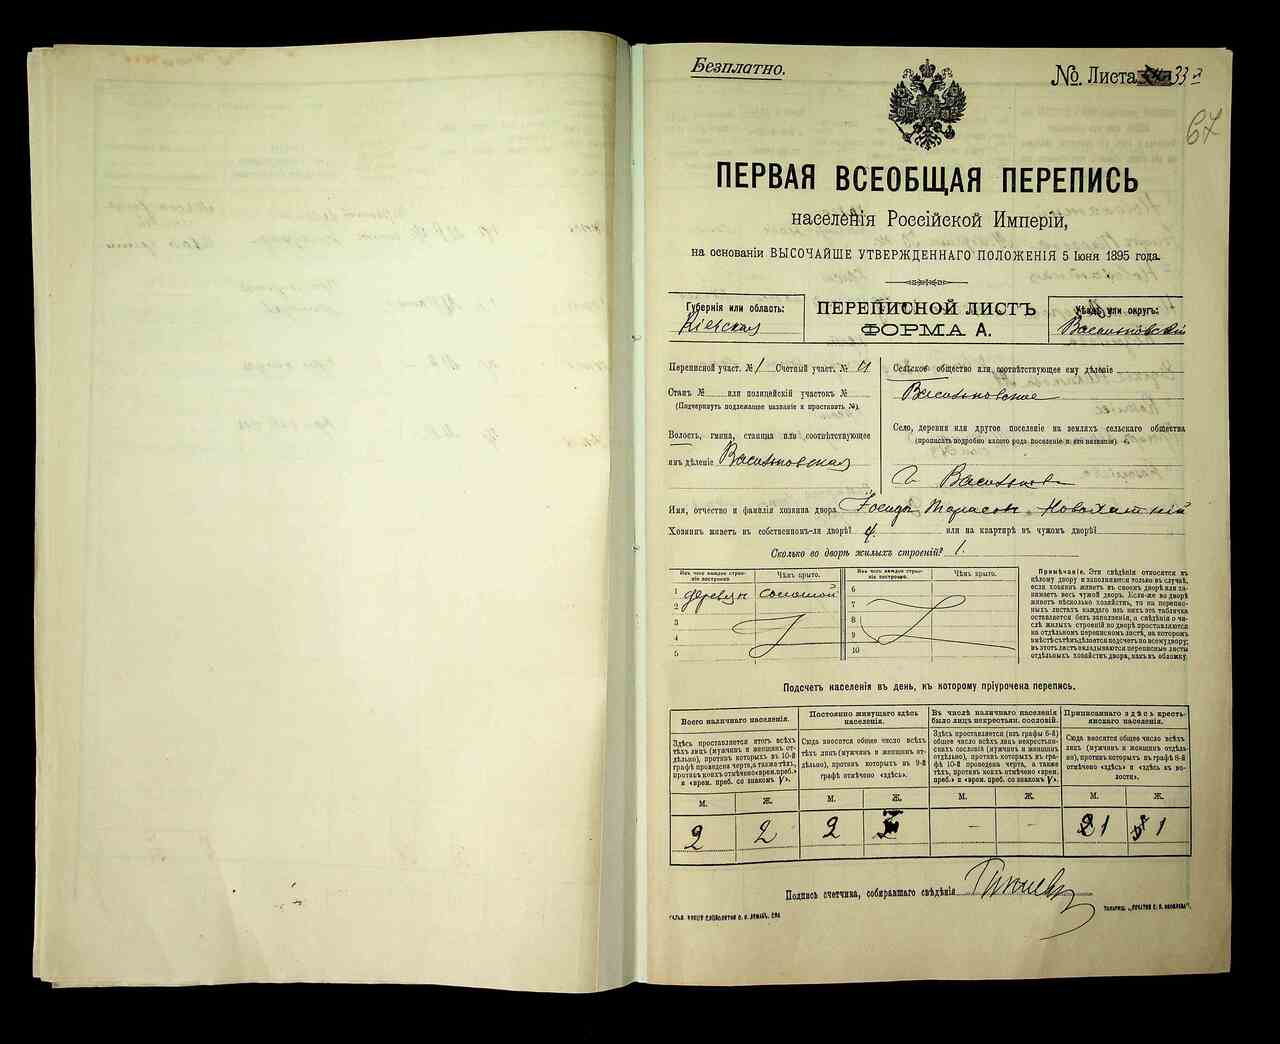 Безплатно.
№ Листа 33
67
ПЕРВАЯ ВСЕОБЩАЯ ПЕРЕПИСЬ
населенія Россійской Имперіи,
на основаніи ВЫСОЧАЙШЕ УТВЕРЖДЕННАГО ПОЛОЖЕНІЯ 5 Іюня 1895 года.
Губернія или область:
Кіевская
ПЕРЕПИСНОЙ ЛИСТЪ
ФОРМА А.
Уѣздъ или округъ:
Васильковскій
Переписной участ. № 1 Счетный участ. № 4
Станъ № или полицейскій участокъ №
(Подчеркнуть подлежащее названіе и проставить №).
Волость, гмина, станица или соотвѣтствующее
имъ дѣленіе Васильковская
Сельское общество или соотвѣтствующее ему дѣленіе
Васильковское
Село, деревня или другое поселеніе на земляхъ сельскаго общества
(прописать подробно какого рода поселеніе и его названіе)
г. Васильков
Имя, отчество и фамилія хозяина двора Іосифъ Тарасов. Новохатній
Хозяинъ живетъ въ собственномъ-ли дворѣ? или на квартирѣ въ чужомъ дворѣ?
Сколько во дворѣ жилыхъ строеній? 1.
Изъ чего каждое строеніе построено. Чѣмъ крыто. Изъ чего каждое строеніе построено. Чѣмъ крыто.
1 деревян соломой 6
2 7
3 8
4 9
5 10
Примѣчаніе. Эти свѣдѣнія относятся къ
цѣлому двору и заполняются только въ случаѣ,
если хозяинъ живетъ въ своемъ дворѣ или занимаетъ
весь чужой дворъ. Если-же во дворѣ
живетъ нѣсколько хозяйствъ, то на переписныхъ
листахъ каждаго изъ нихъ эта табличка
оставляется безъ заполненія, а свѣдѣнія о числѣ
жилыхъ строеній во дворѣ проставляются
на отдѣльномъ переписномъ листѣ, на которомъ
вмѣстѣ съ тѣмъ дѣлается подсчетъ по всему двору;
въ этотъ листъ вкладываются переписные листы
отдѣльныхъ хозяйствъ двора, какъ въ обложку.
Подсчетъ населенія въ день, къ которому пріурочена перепись.
Всего наличнаго населенія.
Здѣсь проставляется итогъ всѣхъ
тѣхъ лицъ (мужчинъ и женщинъ отдѣльно),
противъ которыхъ въ 10-й
графѣ проведена черта, а также тѣхъ,
противъ коихъ отмѣчено «врем. преб.»
и «врем. преб. со знакомъ V».
Постоянно живущаго здѣсь
населенія.
Сюда вносится общее число всѣхъ
тѣхъ лицъ (мужчинъ и женщинъ отдѣльно),
противъ которыхъ въ 9-й
графѣ отмѣчено «здѣсь».
Въ числѣ наличнаго населенія
было лицъ некрестьян. сословій.
Здѣсь проставляется (изъ графы 6-й)
общее число всѣхъ лицъ некрестьянскихъ
сословій (мужчинъ и женщинъ
отдѣльно), противъ которыхъ въ графѣ
10-й проведена черта, а также
тѣхъ, противъ коихъ отмѣчено «врем.
преб.» и «врем. преб. со знакомъ V».
Приписаннаго здѣсь крестьянскаго
населенія.
Сюда вносится общее число всѣхъ
лицъ (мужчинъ и женщинъ отдѣльно),
противъ которыхъ въ графѣ 8-й
отмѣчено «здѣсь» и «здѣсь въ волости».
М. Ж. М. Ж. М. Ж. М. Ж.
2 2 2 – – 1 1
Подпись счетчика, собиравшаго свѣдѣнія